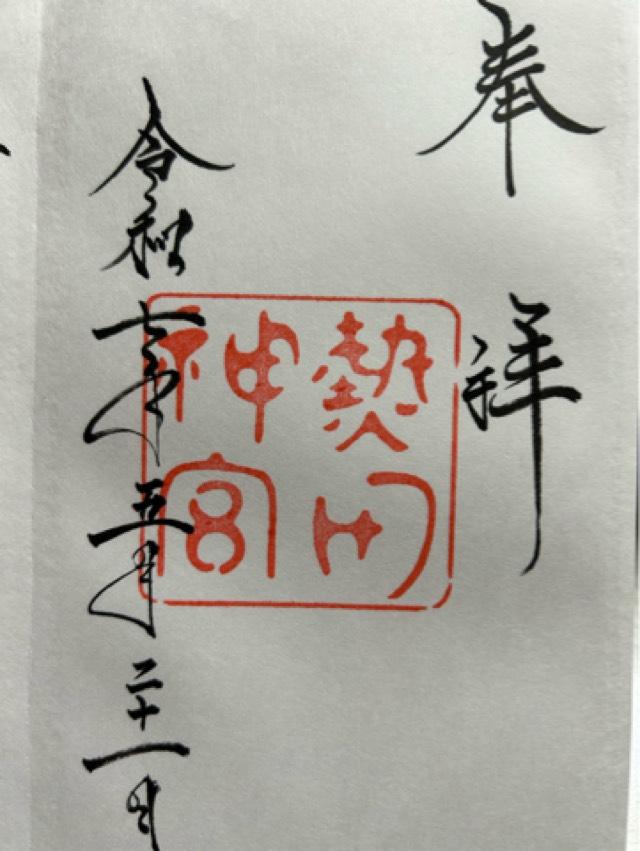 奉拝
熱田
神宮
令和七年五月二十一日